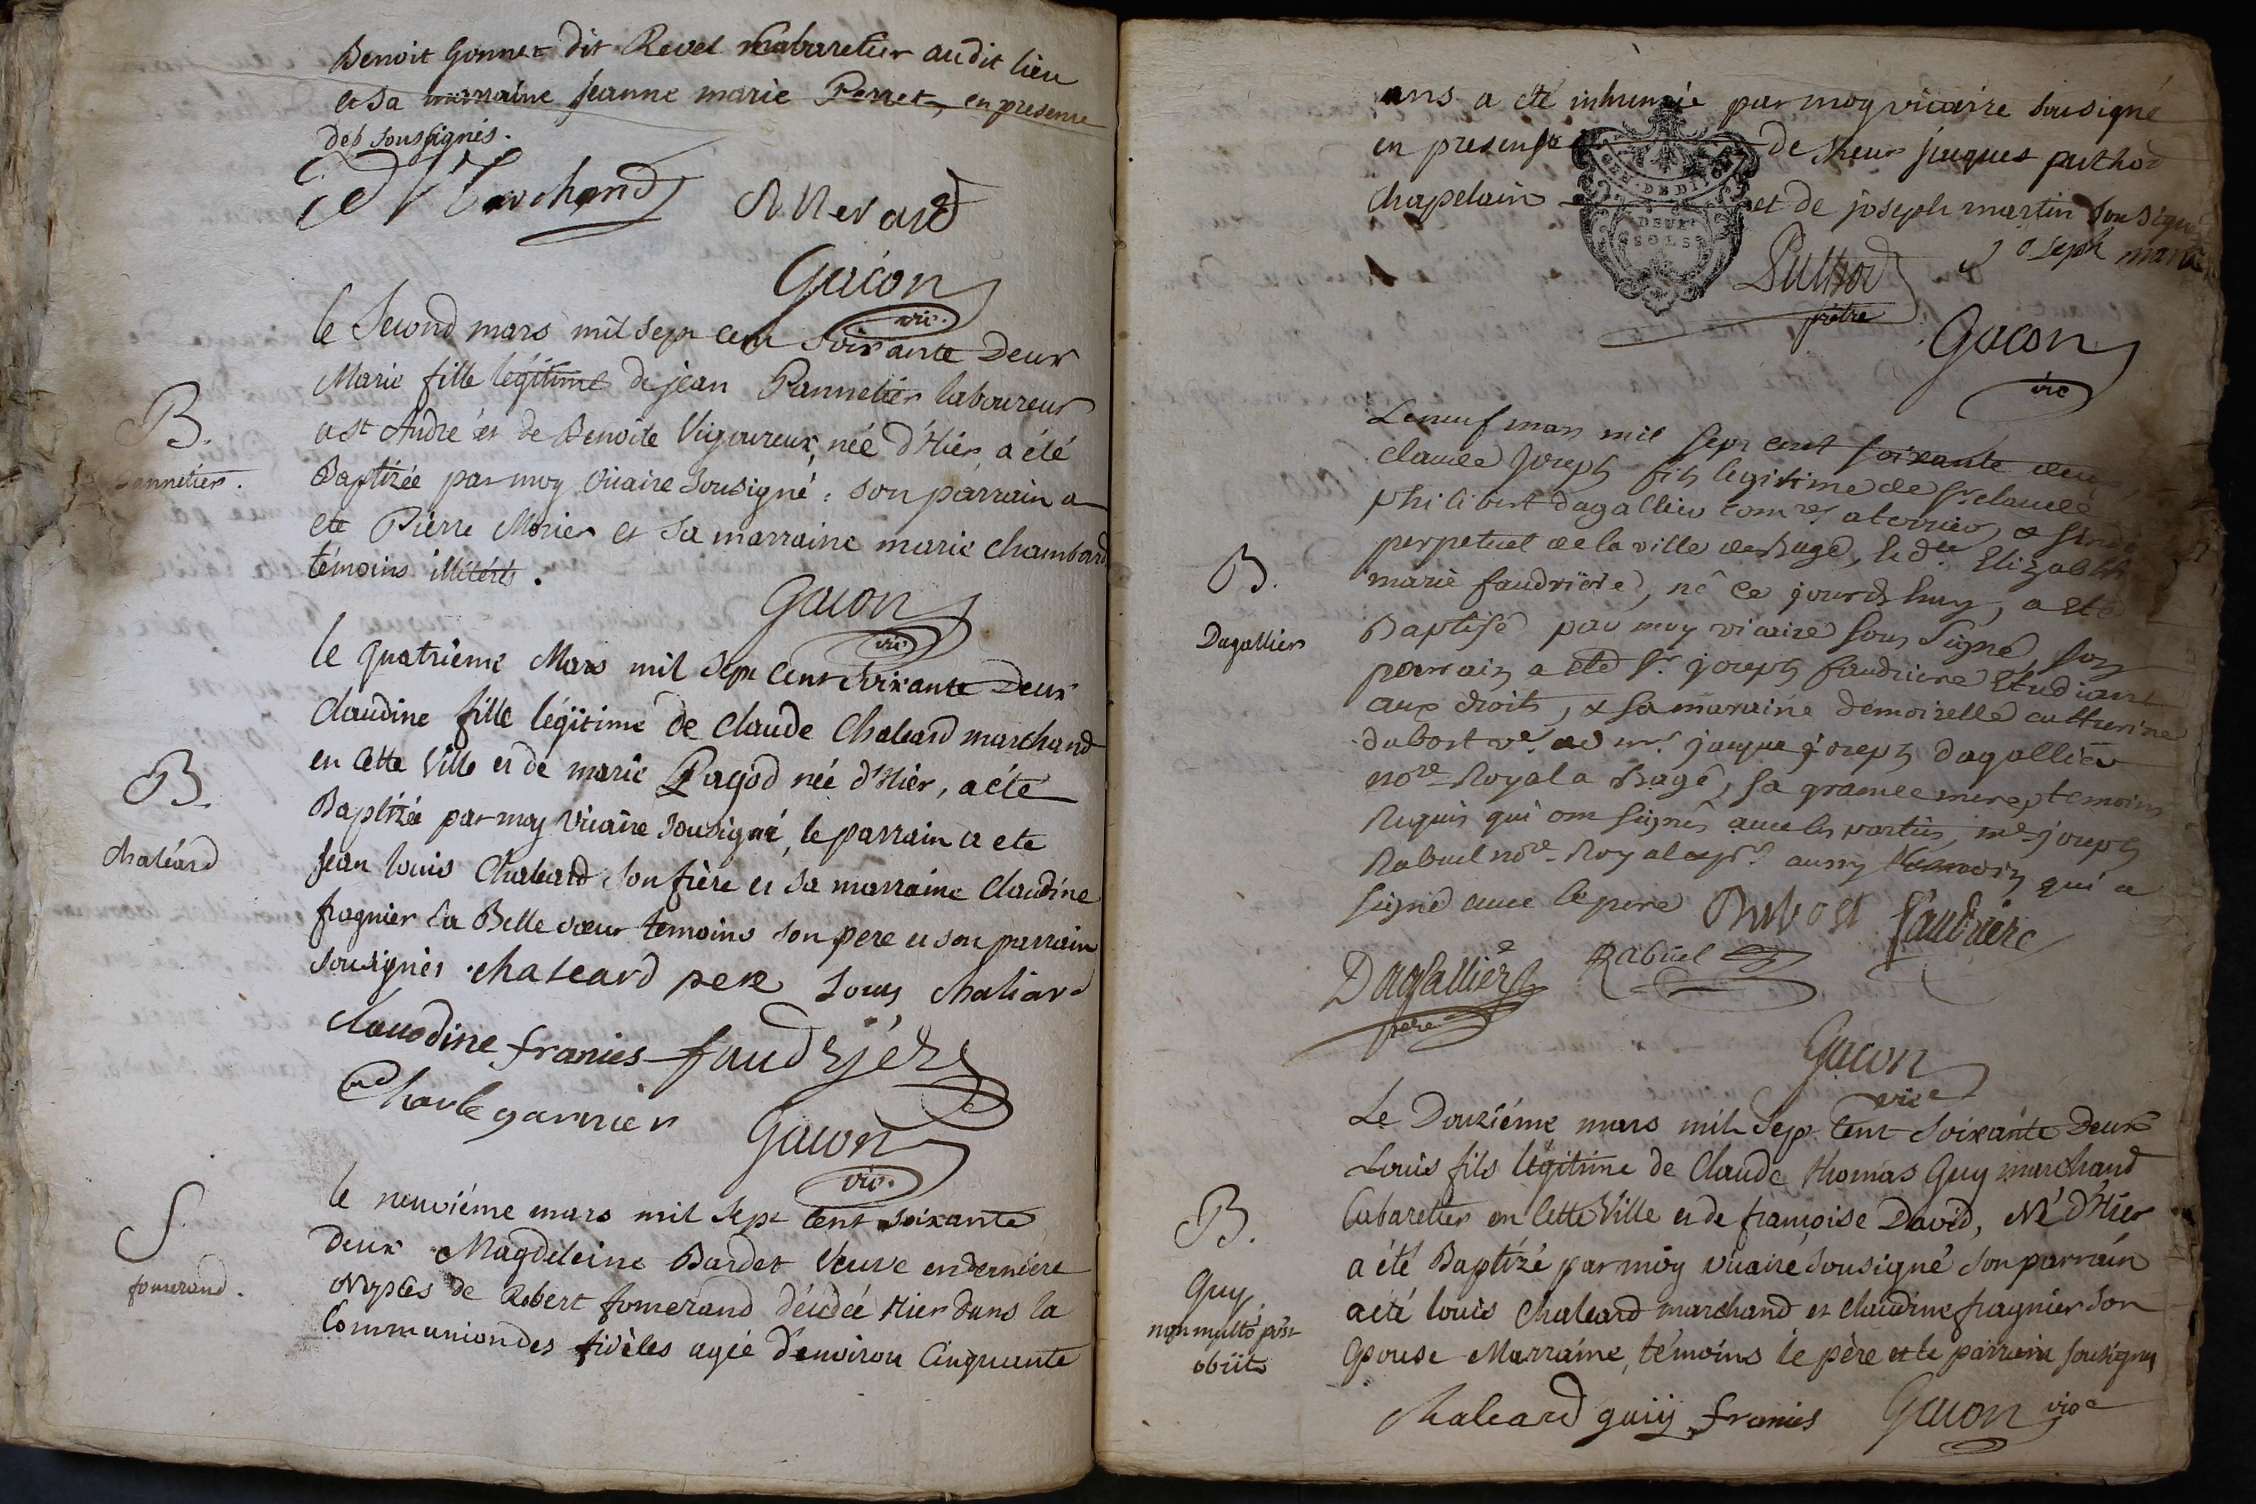 Benoit Gonnet dit Revel Cabaretier audit lieu
et sa marraine jeanne marie Perret, en presence
des soussignés.
Marchand
Gacon
vic.
le Second mars mil sept cent soixante Deux
Marie fille légitime de jean Pannetier laboureur
a st André et de Benoite Vigoureux, née d'Hier, a été
B.
Baptizée par moy Vicaire sousigné, son parrain a
annetier.
eté Pierre Morier et sa marraine marie Chambard
témoins illitérés.
Gacon
vic
le quatrieme Mars mil sept cent soixante Deux
Claudine fille légitime de Claude Chaleard marchand
en cette Ville et de marie Pagod née d'Hier, a été
B.
Baptizée par moy Vicaire sousigné, le parrain a ete
chaléard
jean louis Chaleard son frère et sa marraine Claudine
fragnier sa Belle sœur temoins son pere et son parrain
sousignés. chaleard pere Louis chaliard
claudine franies faudrjére
Charle garnier
Gacon
vic.
le neuviéme mars mil sept cent soixante
S.
deux Magdeleine Bardet Veuve en derniere
fomerand.
Noples de Robert fomerand décédée Hier dans la
Communion des fidèles agée d'environ Cinquante
ans a été inhumée par moy vicaire sousigné
en presence de sieur jaques puthod
Chapelain et de joseph martin sousignés
DEUX
SOLS
Puthod joseph martin
prêtre
Gacon
vic
Le neuf mars mil sept cent soixante deux
claude Joseph fils legitime de sr. claude
philibert dagallier comre. a terrier, & sindic
perpetuel de la ville de Bagé, & de dlle Elizabeth
B.
marie faudriere, né ce jourdhuy, a eté
Dagallier
Baptisé par moy vicaire sous signé, son
parrain a eté sr. joseph faudriere Etudiant
aux droits, & sa maraine demoiselle catherine
dubost ve. de mr. jacque joseph dagallier
nore. Royal a Bagé, sa grande mere, temoins
Requis qui ont signés avec les parties, me. joseph
Rabuel nore. Royal & pr. aussy temoin qui a
signé avec le pere Dubost faudriere
Dagallier Rabuel
pere
Gacon
vice
Le Douziéme mars mil sept cent soixante Deux
Louis fils légitime de Claude thomas Guy marchand
B.
Cabaretier en cette Ville et de françoise David, Né d'Hier
a été Baptízé par moy vicaire sousigné son parrain
Guy
a été louis Chaleard marchand et claudine fragnier son
non multó pòst
obiit
Epouse Marraine, témoins le père et le parrain sousignés
Chaleard guiy franies Gacon vice